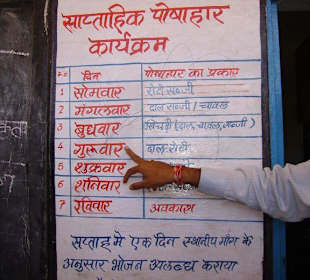 साप्ताहिक पोषाहार
कार्यक्रम
दिन पोषाहार का प्रकार
1 सोमवार रोटी सब्जी
2 मंगलवार दाल सब्जी / चावल
3 बुधवार खिचड़ी (दाल, चावल, सब्जी)
4 गुरूवार दाल रोटी
5 शुक्रवार
6 शनिवार
7 रविवार अवकाश
सप्ताह मे एक दिन स्थानीय माँग के
अनुसार भोजन उपलब्ध कराया